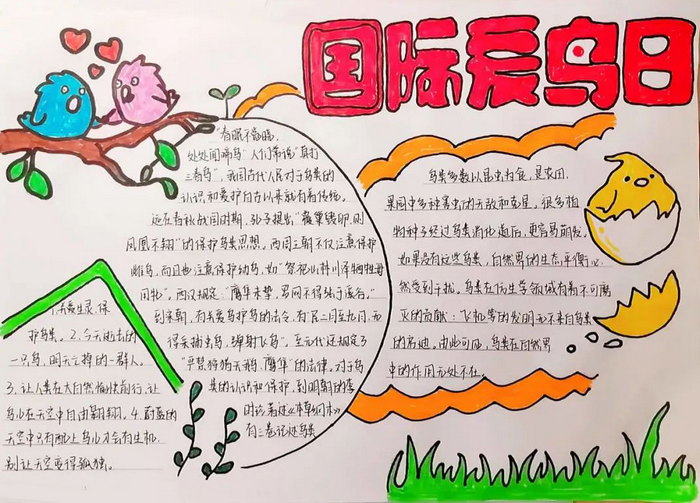 国际爱鸟日
"春眠不觉晓,
处处闻啼鸟"人们常说"莫打
三春鸟",我国古代人民对于鸟类的
认识和爱护自古以来就有着传统。
远在春秋战国时期,孔子提出"覆巢毁卵,则
凤凰不翔"的保护鸟类思想。西周王朝不仅注意保护
雌鸟,而且也注意保护幼鸟,如
西汉规定:"
到宋朝,有关爱鸟护鸟的法令,有"民二月至九月,
得采捕虫鸟,弹射飞鸟"。至元代还规定了
"严禁狩猎天鹅、鹰隼"的法律。对于鸟
类的认识和保护,到明朝的李
时珍著述《本草纲目》
有三卷记述鸟类
1.关爱生灵,保
护鸟类。2.今天逝去的
一只鸟,明天之后的一群人。
3.让人类在大自然愉快前行,让
鸟儿在天空中自由翱翔。4.蔚蓝的
天空中只有配上鸟儿才会有生机,
别让天空变得孤独。
鸟类多数以昆虫为食,是农田、
果园中多种害虫的天敌和克星。很多植
物种子经过鸟类消化道后,更容易萌发。
如果没有这些鸟类,自然界的生态平衡必
然受到干扰。鸟类在仿生学领域有着不可磨
灭的贡献:飞机等的发明无不来自鸟类
的启迪。由此可见,鸟类在自然界
中的作用无处不在。